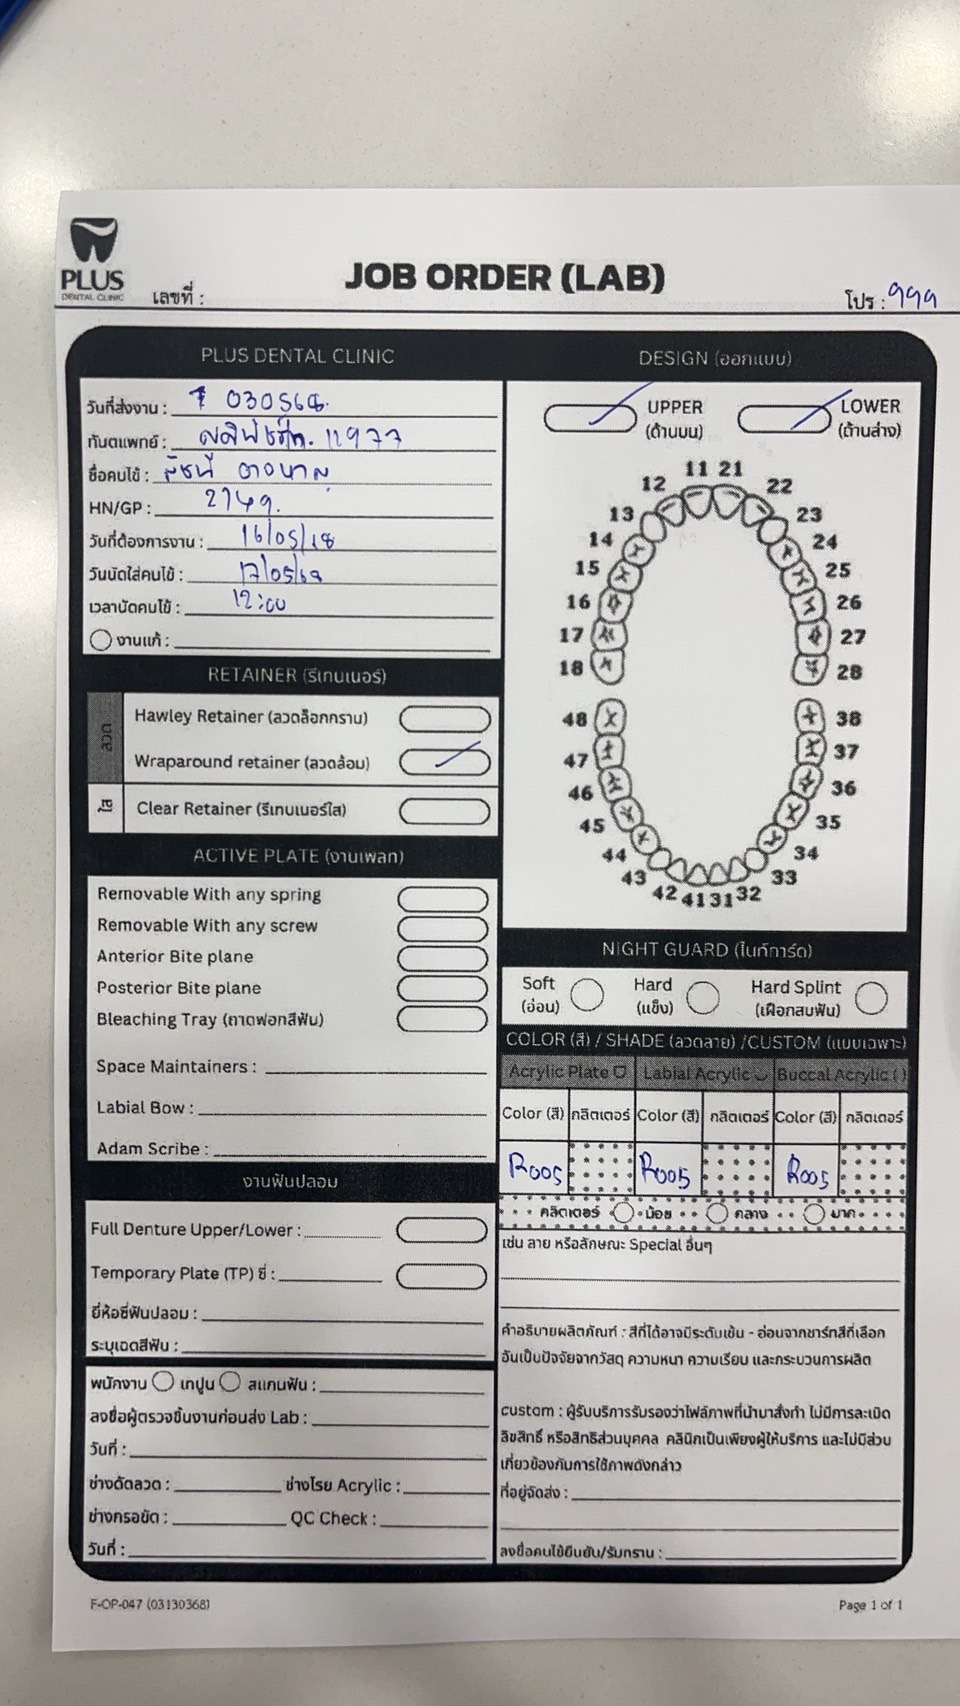 PLUS
DENTAL CLINIC
เลขที่ :
JOB ORDER (LAB)
โปร : 999
PLUS DENTAL CLINIC
วันที่ส่งงาน : 030568
ทันตแพทย์ : 11977
ชื่อคนไข้ :
HN/GP : 2749.
วันที่ต้องการงาน : 16/05/68
วันนัดใส่คนไข้ : 17/05/68
เวลานัดคนไข้ : 12:00
งานแก้ :
RETAINER (รีเทนเนอร์)
ลวด
Hawley Retainer (ลวดล็อกกราม)
Wraparound retainer (ลวดล้อม)
ใส
Clear Retainer (รีเทนเนอร์ใส)
ACTIVE PLATE (งานเพลท)
Removable With any spring
Removable With any screw
Anterior Bite plane
Posterior Bite plane
Bleaching Tray (ถาดฟอกสีฟัน)
Space Maintainers :
Labial Bow :
Adam Scribe :
งานฟันปลอม
Full Denture Upper/Lower :
Temporary Plate (TP) ซี่ :
ยี่ห้อซี่ฟันปลอม :
ระบุเฉดสีฟัน :
พนักงาน เทปูน สแกนฟัน :
ลงชื่อผู้ตรวจชิ้นงานก่อนส่ง Lab :
วันที่ :
ช่างดัดลวด : ช่างโรย Acrylic :
ช่างกรอขัด : QC Check :
วันที่ :
DESIGN (ออกแบบ)
UPPER
(ด้านบน)
LOWER
(ด้านล่าง)
11 21
12 22
13 23
14 24
15 25
16 26
17 27
18 28
48 38
47 37
46 36
45 35
44 34
43 33
42 41 31 32
NIGHT GUARD (ไนท์การ์ด)
Soft
(อ่อน)
Hard
(แข็ง)
Hard Splint
(เฝือกสบฟัน)
COLOR (สี) / SHADE (ลวดลาย) /CUSTOM (แบบเฉพาะ)
Acrylic Plate Labial Acrylic Buccal Acrylic ( )
Color (สี) กลิตเตอร์ Color (สี) กลิตเตอร์ Color (สี) กลิตเตอร์
R005 R005 R005
กลิตเตอร์ น้อย กลาง มาก
เช่น ลาย หรือลักษณะ Special อื่นๆ
คำอธิบายผลิตภัณฑ์ : สีที่ได้อาจมีระดับเข้ม - อ่อนจากชาร์ทสีที่เลือก
อันเป็นปัจจัยจากวัสดุ ความหนา ความเรียบ และกระบวนการผลิต
custom : ผู้รับบริการรับรองว่าไฟล์ภาพที่นำมาสั่งทำ ไม่มีการละเมิด
ลิขสิทธิ์ หรือสิทธิส่วนบุคคล คลินิกเป็นเพียงผู้ให้บริการ และไม่มีส่วน
เกี่ยวข้องกับการใช้ภาพดังกล่าว
ที่อยู่จัดส่ง :
ลงชื่อคนไข้ยืนยัน/รับทราบ :
F-OP-047 (03130368)
Page 1 of 1